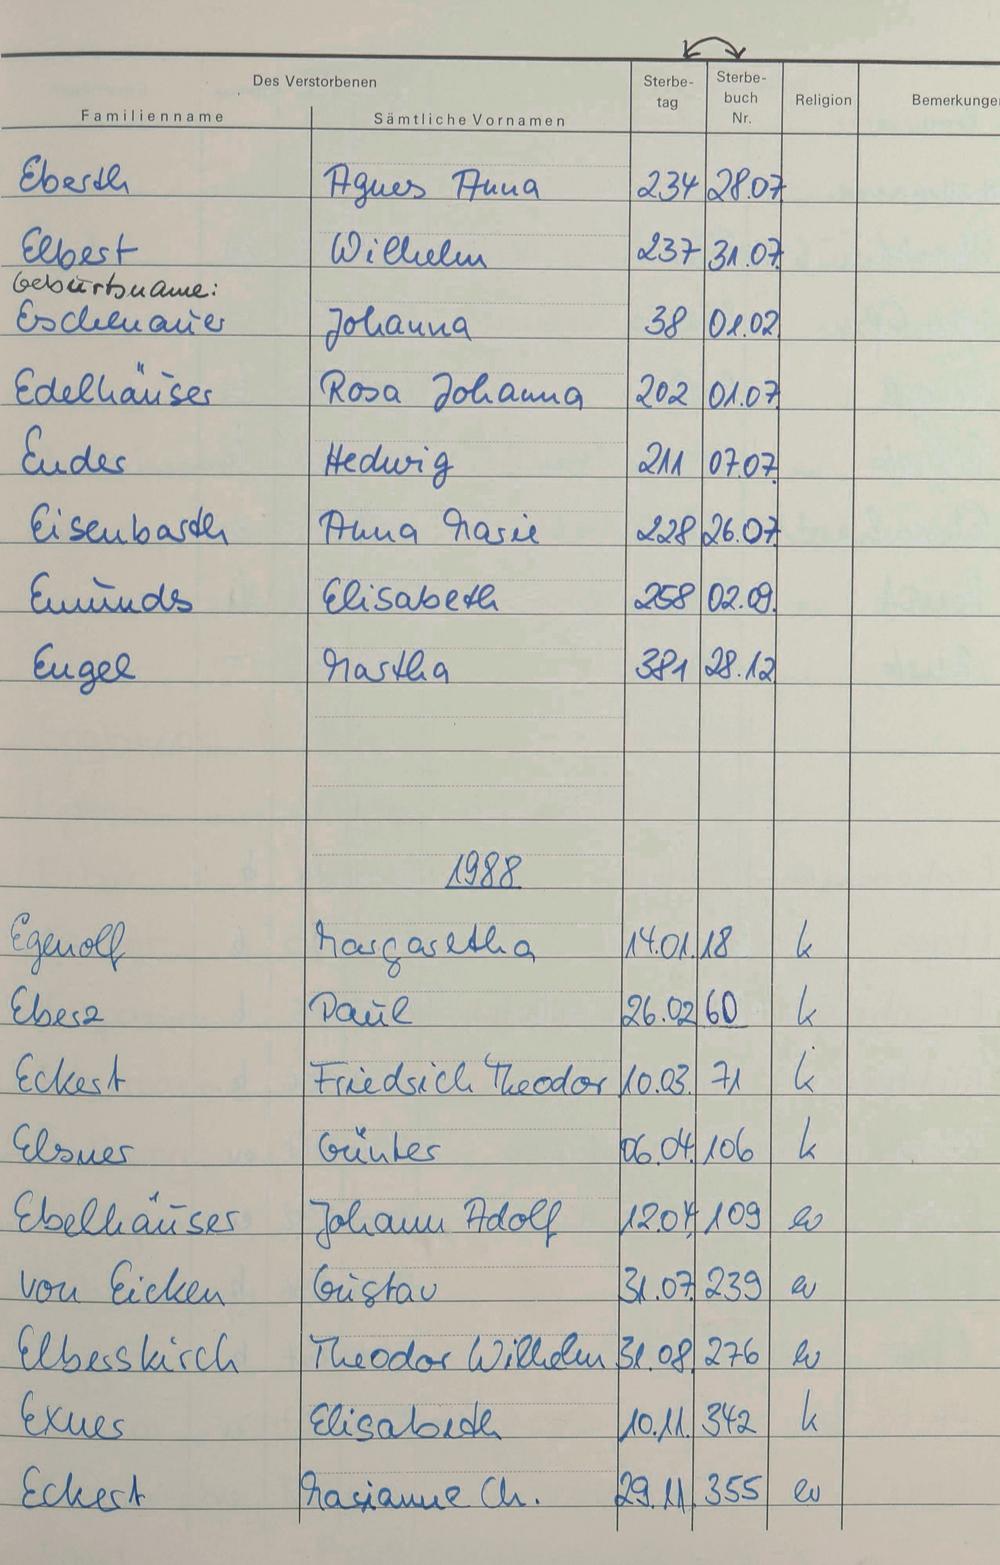 Des Verstorbenen
Familienname Sämtliche Vornamen Sterbe-tag Sterbe-buch Nr. Religion Bemerkungen
Eberth Agnes Anna 234 28.07
Elbert Wilhelm 237 31.07
Geburtsname:
Eschenauer Johanna 38 01.02
Edelhäuser Rosa Johanna 202 01.07
Endes Hedwig 211 07.07
Eisenbarth Anna Marie 228 26.07
Emünds Elisabeth 258 02.09.
Engel Martha 381 28.12
1988
Egenolf Margaretha 14.01. 18 k
Eberz Paul 26.02 60 k
Eckert Friedrich Theodor 10.03. 71 k
Elsner Günter 06.04. 106 k
Ebelhäuser Johann Adolf 12.04 109 ev
von Eicken Gustav 31.07 239 ev
Elberskirch Theodor Wilhelm 31.08. 276 ev
Exner Elisabeth 10.11. 342 k
Eckert Marianne Ch. 29.11. 355 ev